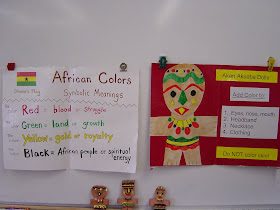 African Colors
Ghana's Flag
Symbolic Meanings
Red = blood or struggle
Green = land or growth
Yellow = gold or royalty
Black = African people or spiritual
energy
Akan Akuaba Dolls
Add Color to:
1. Eyes, nose, mouth
2. Headband
3. Necklace
4. Clothing
Do NOT color face!